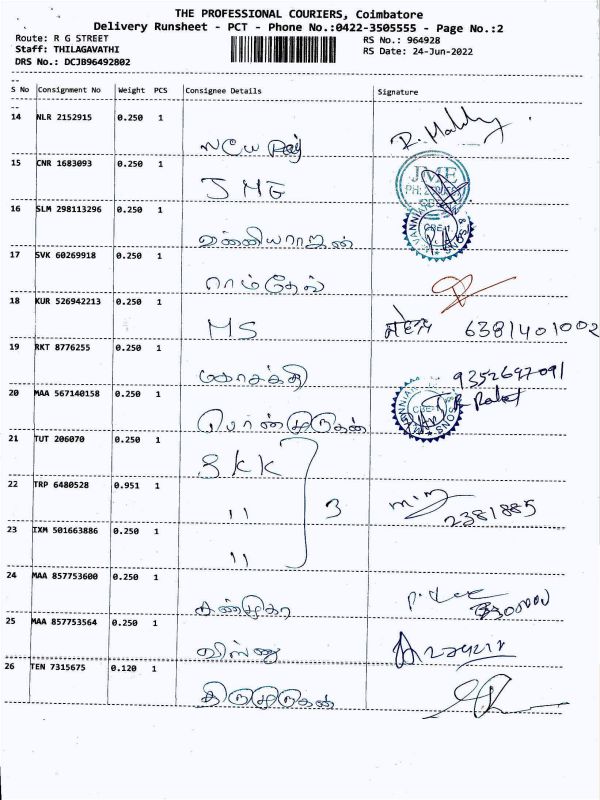 THE PROFESSIONAL COURIERS, Coimbatore
Delivery Runsheet - PCT - Phone No.:0422-3505555 - Page No.:2
Route: R G STREET
RS No.: 964928
Staff: THILAGAVATHI
RS Date: 24-Jun-2022
DRS No.: DCJB96492802
S No Consignment No Weight PCS Consignee Details Signature
14 NLR 2152915 0.250 1
15 CNR 1683093 0.250 1
JME
JME
16 SLM 298113296 0.250 1
வன்னியராஜன்
17 SVK 60269918 0.250 1
ராம்தேவ்
18 KUR 526942213 0.250 1
MS 6381401002
19 RKT 8776255 0.250 1
மகாசக்தி 9352697091
20 MAA 567140158 0.250 1
பொன்முருகன்
21 TUT 206070 0.250 1
SKK
22 TRP 6480528 0.951 1
11 3 2381885
23 IXM 501663886 0.250 1
11
24 MAA 857753600 0.250 1
25 MAA 857753564 0.250 1
விஸ்ணு
26 TEN 7315675 0.120 1
திருமுருகன்